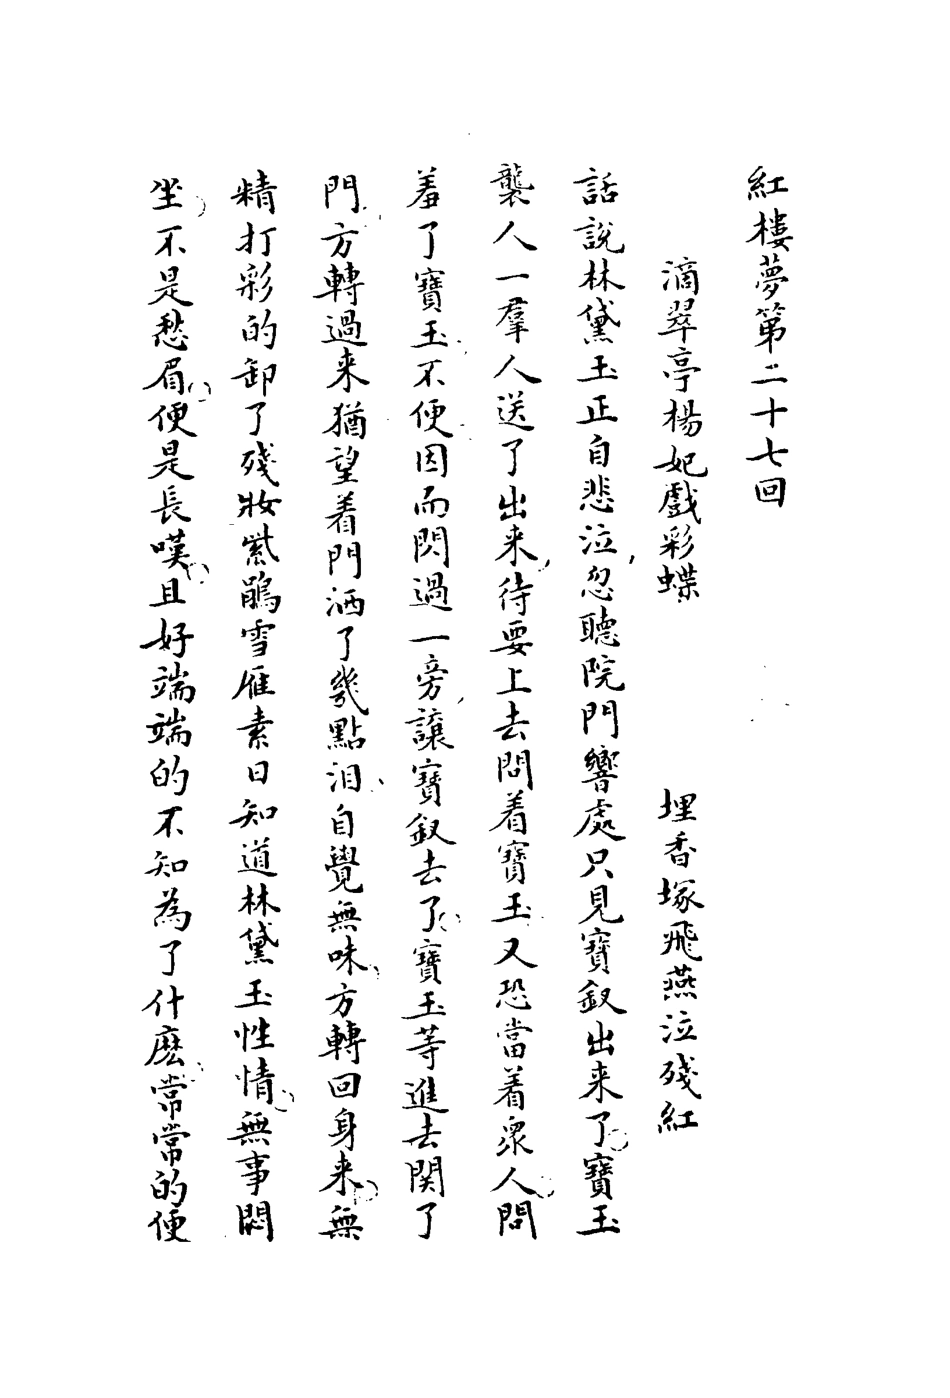 紅樓夢第二十七回
滴翠亭楊妃戲彩蝶　埋香塚飛燕泣殘紅
話說林黛玉正自悲泣忽聽院門響處只見寶釵出来了寶玉
襲人一羣人送了出来待要上去問着寶玉又恐當着衆人問
羞了寶玉不便因而閃過一旁讓寶釵去了寶玉等進去関了
門方轉過来猶望着門洒了幾點泪自覺無味方轉回身来無
精打彩的卸了殘妝紫鵑雪雁素日知道林黛玉性情無事悶
坐不是愁眉便是長嘆且好端端的不知為了什麽常常的便